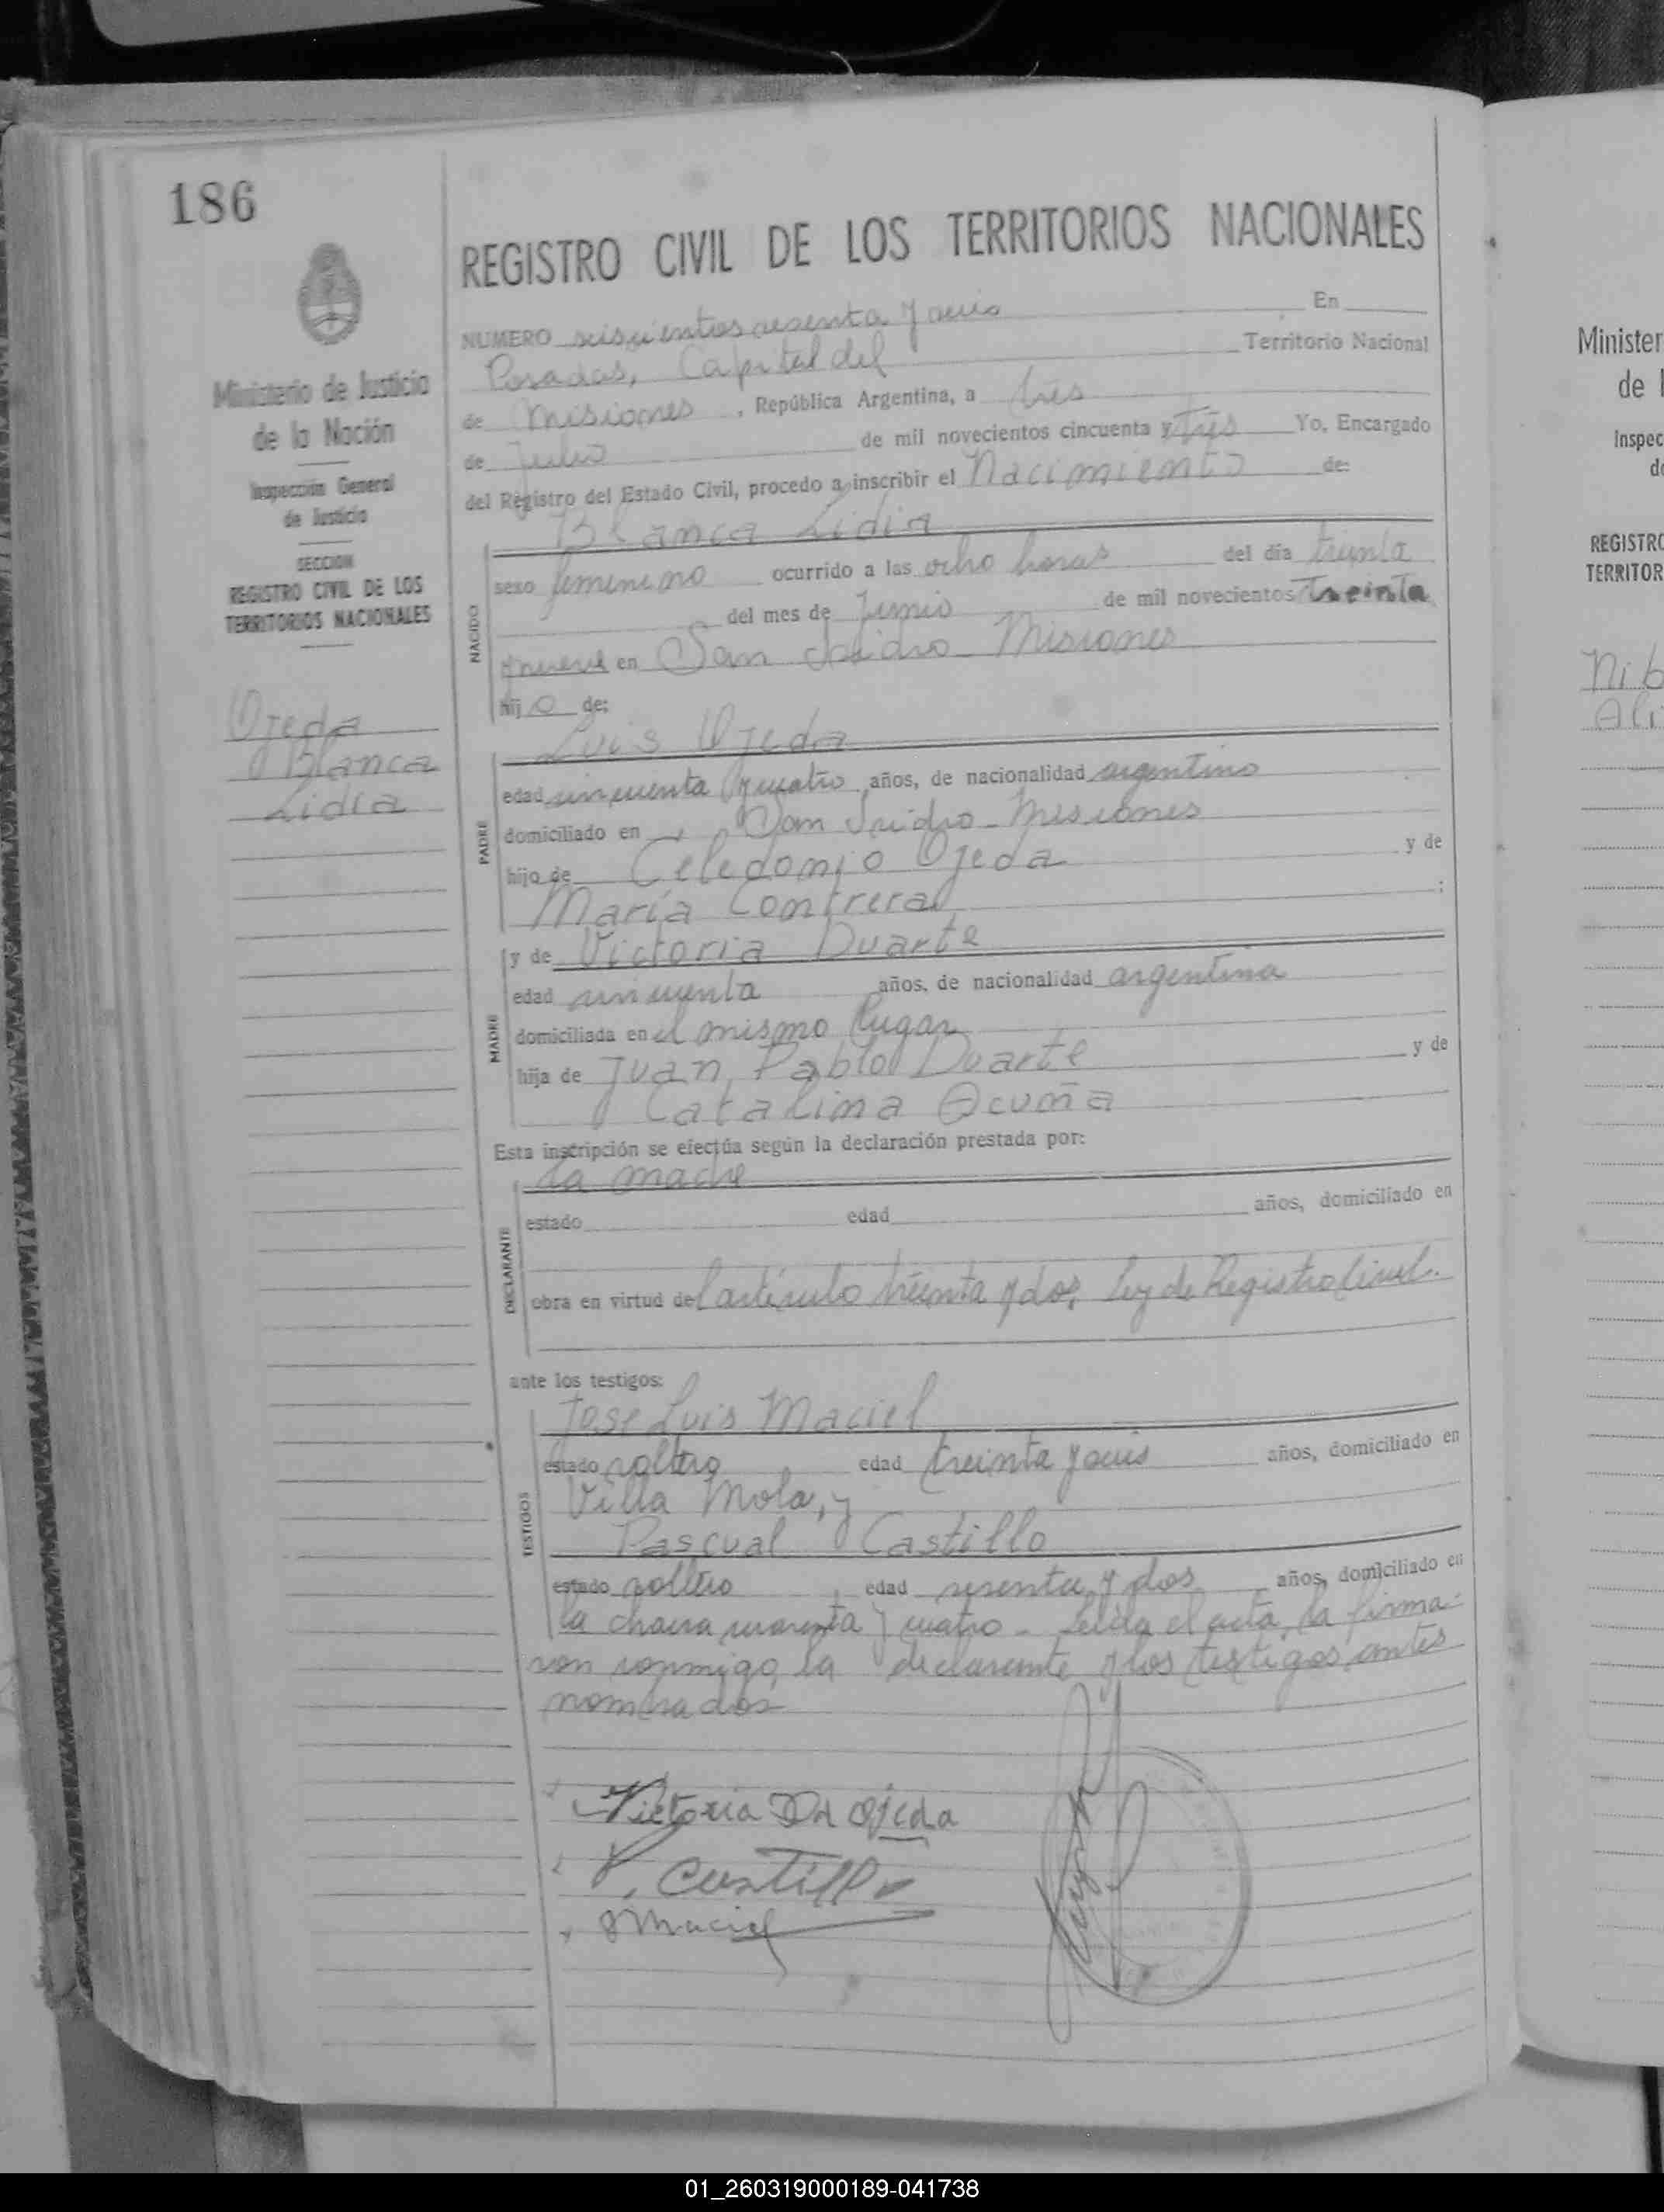 186
REGISTRO CIVIL DE LOS TERRITORIOS NACIONALES
Ministerio de Justicia
de la Nación
Inspección General
de Justicia
SECCION
REGISTRO CIVIL DE LOS
TERRITORIOS NACIONALES
Ojeda
Blanca
Lidia
NUMERO seiscientos sesenta y seis En
Posadas, Capital del Territorio Nacional
de Misiones, República Argentina, a tres
de Julio de mil novecientos cincuenta y tres Yo, Encargado
del Registro del Estado Civil, procedo a inscribir el Nacimiento de:
Blanca Lidia
NACIDO
sexo femenino ocurrido a las ocho horas del día treinta
del mes de Junio de mil novecientos treinta
y nueve en San Isidro - Misiones
hijo de:
Luis Ojeda
PADRE
edad cincuenta y cuatro años, de nacionalidad argentino
domiciliado en San Isidro - Misiones
hijo de Celedonio Ojeda y de
María Contrera ;
y de Victoria Duarte
MADRE
edad cincuenta años, de nacionalidad argentina
domiciliada en el mismo lugar
hija de Juan Pablo Duarte y de
Catalina Acuña
Esta inscripción se efectúa según la declaración prestada por:
la madre
DECLARANTE
estado edad años, domiciliado en
obra en virtud del artículo treinta y dos, Ley de Registro Civil.
ante los testigos:
Jose Luis Maciel
TESTIGOS
estado soltero edad treinta y seis años, domiciliado en
Villa Mola, y
Pascual Castillo
estado soltero edad sesenta y dos años, domiciliado en
la chacra cuarenta y cuatro - Leida el acta, la firma-
ron conmigo, la declarante y los testigos antes
nombrados
Victoria D de Ojeda
P. Castillo
J Maciel
Minister
de l
Inspec
de
REGISTRO
TERRITOR
01_260319000189-041738